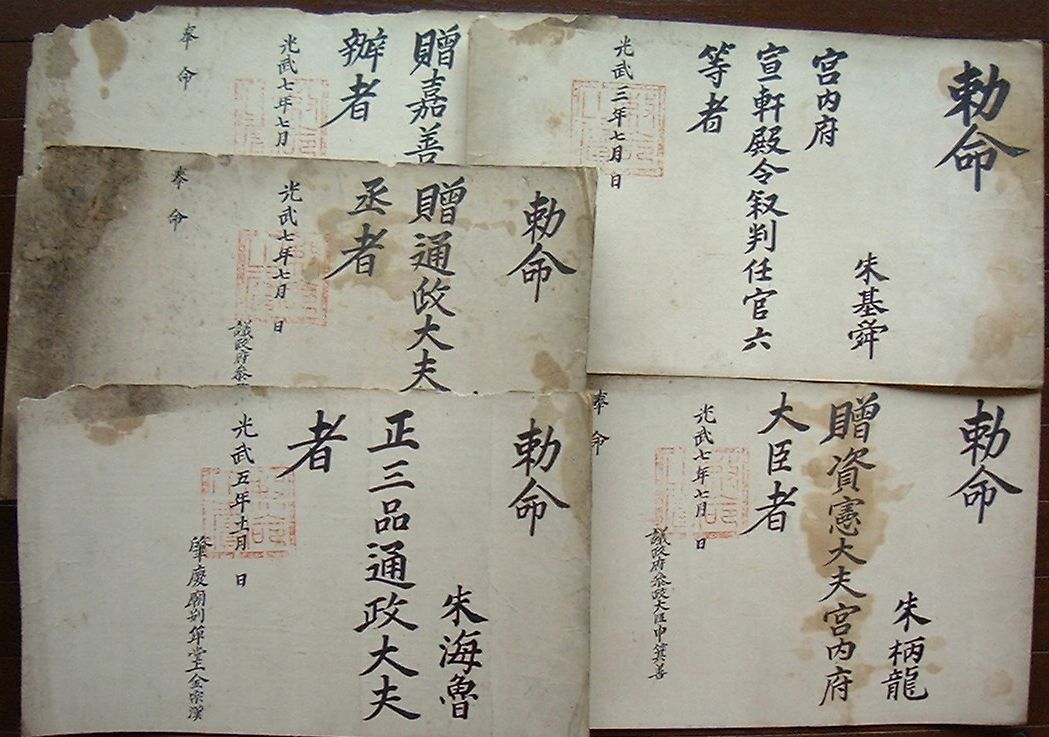 勅命
朱基舜
宮内府
宣軒殿令叙判任官六
等者
光武三年七月 日
贈嘉善
辦者
光武七年七月
奉命
勅命
贈通政大夫
丞者
光武七年七月 日
議政府參
奉命
勅命
朱海魯
正三品通政大夫
者
光武五年十一月 日
肇慶廟別單堂上金宗漢
勅命
朱柄龍
贈資憲大夫宮内府
大臣者
光武七年七月 日
議政府參政大臣申箕善
奉命